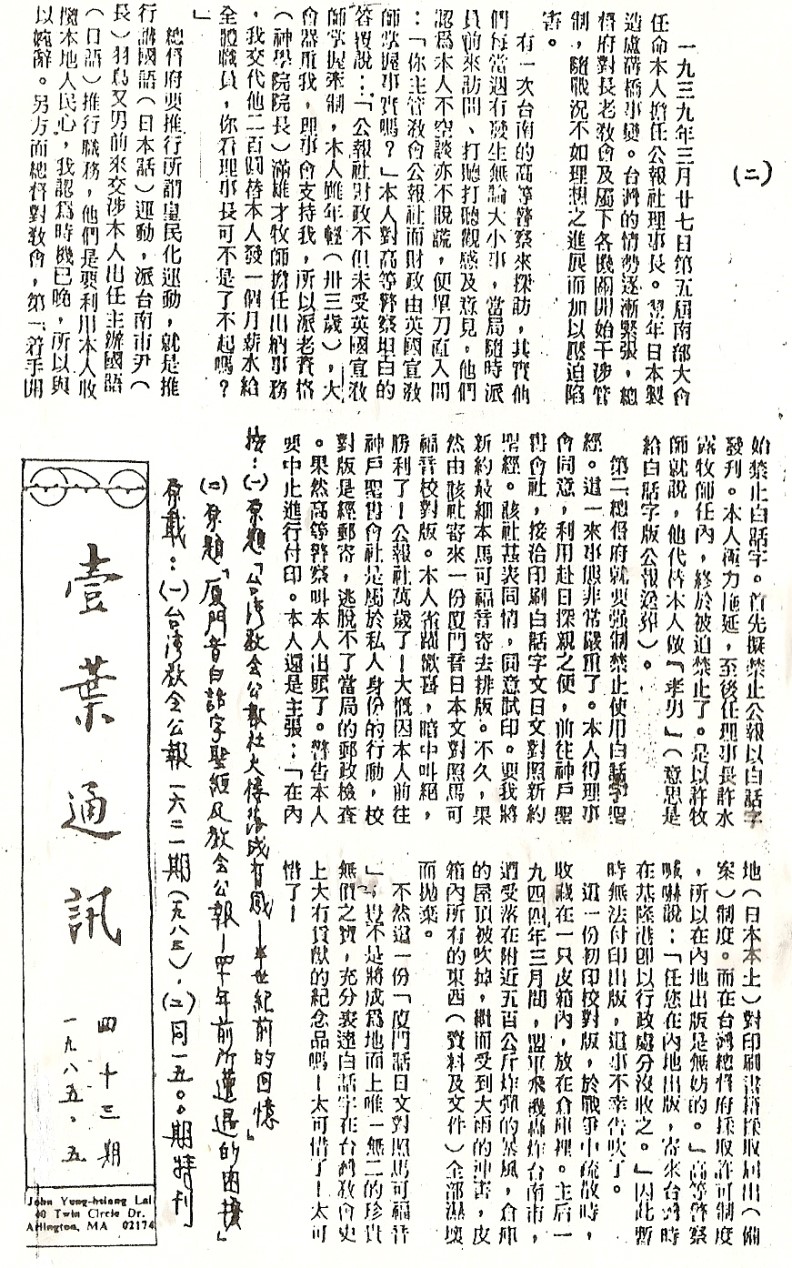 (二)
一九三九年三月廿七日第五屆南部大會
任命本人擔任公報社理事長。翌年日本製
造盧溝橋事變。台灣的情勢逐漸緊張，總
督府對長老教會及屬下各機關開始干涉管
制，隨戰況不如理想之進展而加以壓迫陷
害。
有一次台南的高等警察來探訪，其實他
們每當週有發生無論大小事，當局隨時派
員前來訪問、打聽打聽觀感及意見，他們
認為本人不空談亦不說謊，便單刀直入問
：「你主管教會公報社而財政由英國宣教
師掌握事實嗎？」本人對高等警察坦白的
答覆說：「公報社財政不但未受英國宣教
師掌握牽制，本人雖年輕（卅三歲），大
會器重我，理事會支持我，所以派老資格
（神學院院長）滿雄才牧師擔任出納事務
，我交代他二百圓替本人發一個月薪水給
全體職員，你看理事長可不是了不起嗎？
」
總督府要推行所謂皇民化運動，就是推
行講國語（日本話）運動，派台南市尹（
長）羽鳥又男前來交涉本人出任主辦國語
（日語）推行職務，他們是要利用本人收
攬本地人民心，我認為時機已晚，所以與
以婉辭。另方面總督對教會，第一着手開
始禁止白話字。首先擬禁止公報以白話字
發刊。本人極力拖延，至後任理事長許水
露牧師任內，終於被迫禁止了。是以許牧
師就說，他代替本人做「孝男」（意思是
給白話字版公報送葬）。
第二總督府就要强制禁止使用白話字聖
經。這一來事態非常嚴重了。本人得理事
會同意，利用赴日探親之便，前往神戶聖
書會社，接洽印刷白話字文日文對照新約
聖經。該社甚表同情，同意試印。要我將
新約最細本馬可福音寄去排版。不久，果
然由該社寄來一份廈門音日本文對照馬可
福音校對版。本人雀躍歡喜，暗中叫絕，
勝利了！公報社萬歲了！大概因本人前往
神戶聖書會社是屬於私人身份的行動，校
對版是經郵寄，逃脫不了當局的郵政檢查
。果然高等警察叫本人出頭了。警告本人
要中止進行付印。本人還是主張：「在內
地（日本本土）對印刷書籍採取屆出（備
案）制度。而在台灣總督府採取許可制度
，所以在內地出版是無妨的。」高等警察
喊嚇說：「任您在內地出版，寄來台灣時
在基隆港即以行政處分沒收之。」因此暫
時無法付印出版，這事不幸告吹了。
這一份初印校對版，於戰爭中疏散時，
收藏在一只皮箱內，放在倉庫裡。主后一
九四四年三月間，盟軍飛機轟炸台南市，
遭受落在附近五百公斤炸彈的暴風，倉庫
的屋頂被吹掉，繼而受到大雨的沖害，皮
箱內所有的東西（資料及文件）全部濕壞
而拋棄。
不然這一份「廈門話日文對照馬可福音
」，豈不是將成為地面上唯一無二的珍貴
無價之寶，充分表達白話字在台灣教會史
上大有貢獻的紀念品嗎！太可惜了！太可
惜了！
按：(一)原題「台灣教会公報社大樓落成有感—半世紀前的回憶」
(二)原題「厦門音白話字聖經及教会公報—四十年前所遭遇的困擾」
原載：(一)台湾教会公報一六二一期(一九八三)，(二)同一五〇〇期特刊
壹葉通訊
四十三期
一九八五.五
John Yung-hsiang Lai
40 Twin Circle Dr.
Arlington, MA 02174